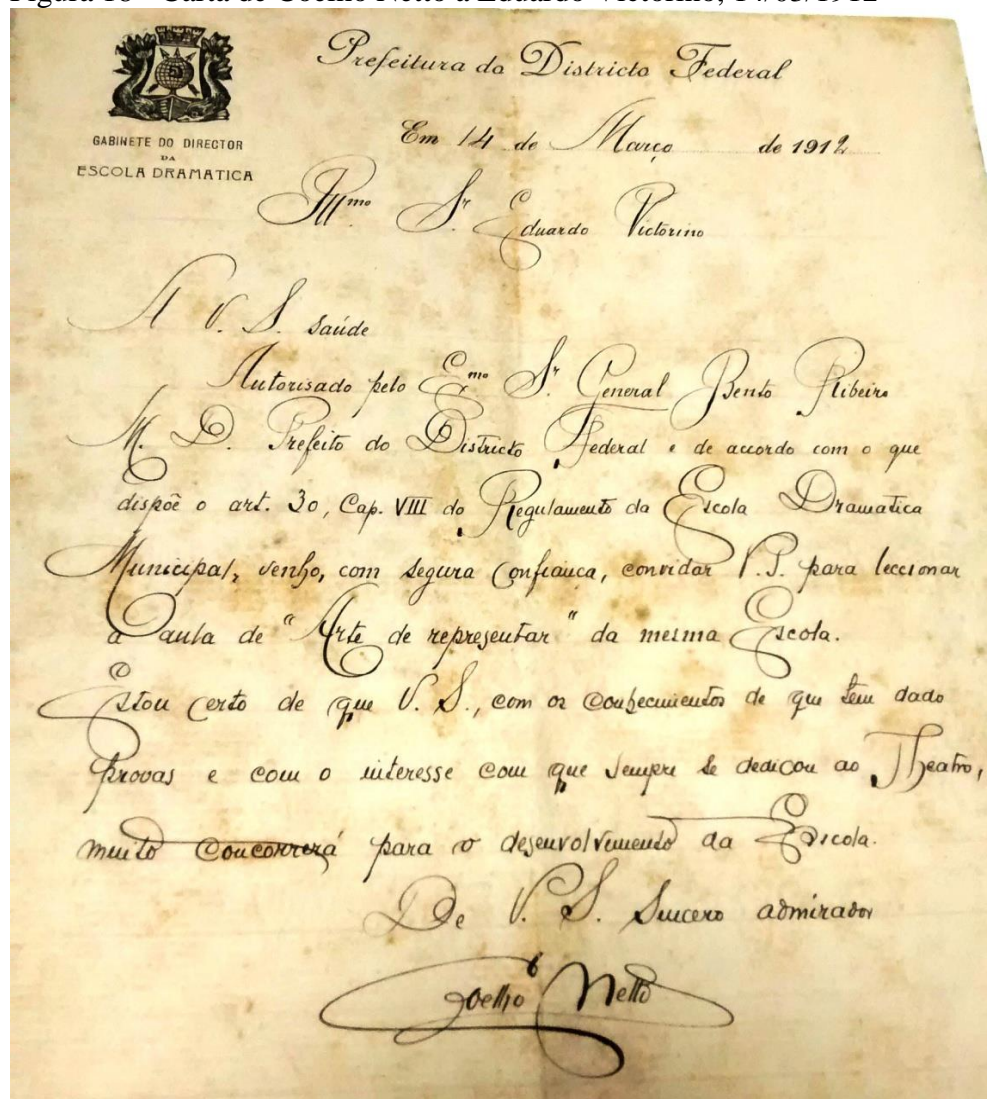 Figura 18 - Carta de Coelho Netto a Eduardo Victorino, 14/03/1912
Prefeitura do Districto Federal
GABINETE DO DIRECTOR
DA
ESCOLA DRAMATICA
Em 14 de Março de 1912
Illmo Sr Eduardo Victorino
A V. S. saúde
Autorisado pelo Exmo Sr General Bento Ribeiro
M. D. Prefeito do Districto Federal e de accordo com o que
dispõe o art. 30, Cap. VIII do Regulamento da Escola Dramatica
Municipal, venho, com segura confiança, convidar V. S. para leccionar
a aula de "Arte de representar" da mesma Escola.
Estou certo de que V. S., com os conhecimentos de que tem dado
provas e com o interesse com que sempre se dedicou ao Theatro,
muito concorrerá para o desenvolvimento da Escola.
De V. S. Sincero admirador
Coelho Netto